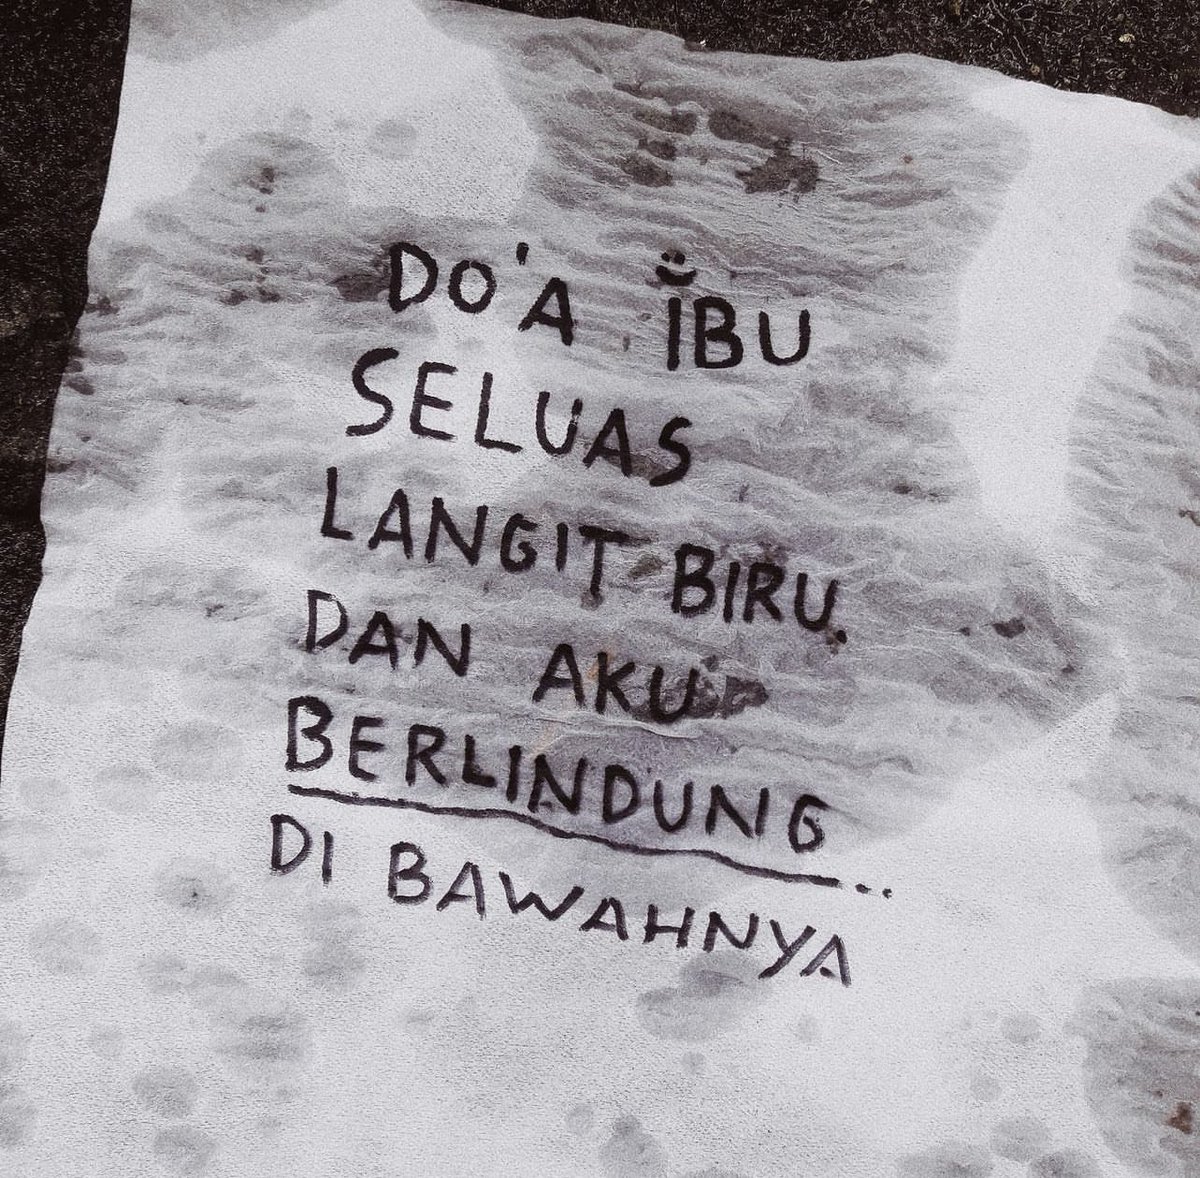 DO'A IBU
SELUAS
LANGIT BIRU.
DAN AKU
BERLINDUNG
DI BAWAHNYA